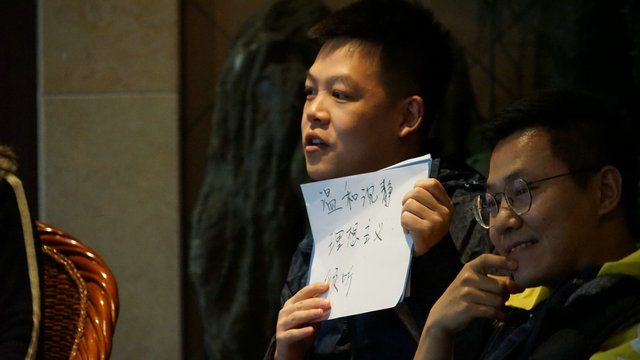 温和沉静
理想主义
倾听